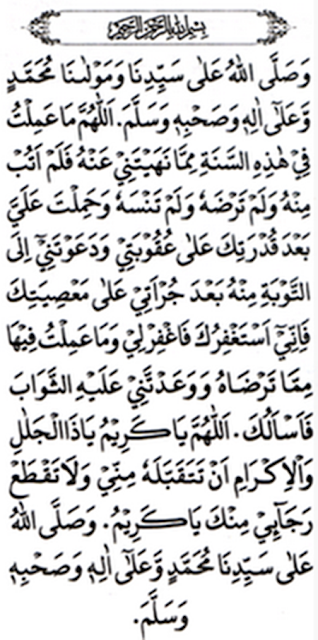 بِسْمِ اللهِ الرَّحْمٰنِ الرَّحِيْمِ
وَصَلَّى اللهُ عَلٰى سَيِّدِنَا وَمَوْلٰنَا مُحَمَّدٍ
وَّعَلٰٓى اٰلِهٖ وَصَحْبِهٖ وَسَلَّمَ. اَللّٰهُمَّ مَا عَمِلْتُ
فِيْ هٰذِهِ السَّنَةِ مِمَّا نَهَيْتَنِيْ عَنْهُ فَلَمْ اَتُبْ
مِنْهُ وَلَمْ تَرْضَهُ وَلَمْ تَنْسَهُ وَحَمِلْتَ عَلَيَّ
بَعْدَ قُدْرَتِكَ عَلٰى عُقُوْبَتِيْ وَدَعَوْتَنِيْٓ اِلَى
التَّوْبَةِ مِنْهُ بَعْدَ جُرْاَتِيْ عَلٰى مَعْصِيَتِكَ
فَاِنِّيْٓ اَسْتَغْفِرُكَ فَاغْفِرْلِيْ وَمَا عَمِلْتُ فِيْهَا
مِمَّا تَرْضَاهُ وَوَعَدْتَّنِيْ عَلَيْهِ الثَّوَابَ
فَاَسْاَلُكَ. اَللّٰهُمَّ يَا كَرِيْمُ يَا ذَا الْجَلٰلِ
وَالْاِكْرَامِ اَنْ تَتَقَبَّلَهُ مِنِّيْ وَلَا تَقْطَعْ
رَجَآئِيْ مِنْكَ يَا كَرِيْمُ. وَصَلَّى اللهُ
عَلٰى سَيِّدِنَا مُحَمَّدٍ وَّعَلٰٓى اٰلِهٖ وَصَحْبِهٖ
وَسَلَّمَ.